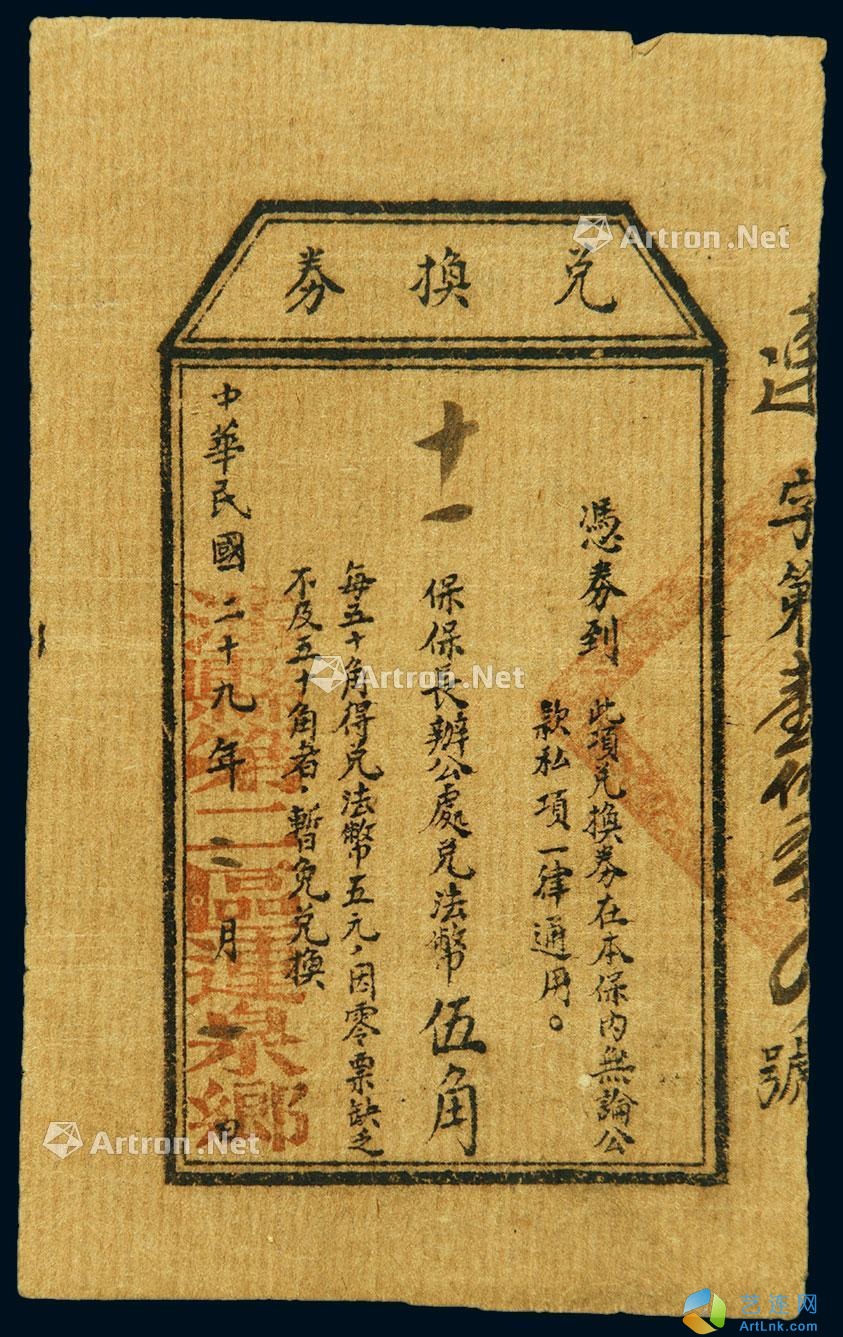 兌換券
憑券到
此項兌換券在本保内無論公
款私項一律通用。
十一
保保長辦公處兌法幣伍角
每五十角得兌法幣五元,因零票缺乏
不及五十角者,暫免兌換
中華民國二十九年二月一日
第二區蓮泉鄉
字第壹
號
Artron.Net
Artron.Net
Artron.Net
艺连网
ArtLnk.com